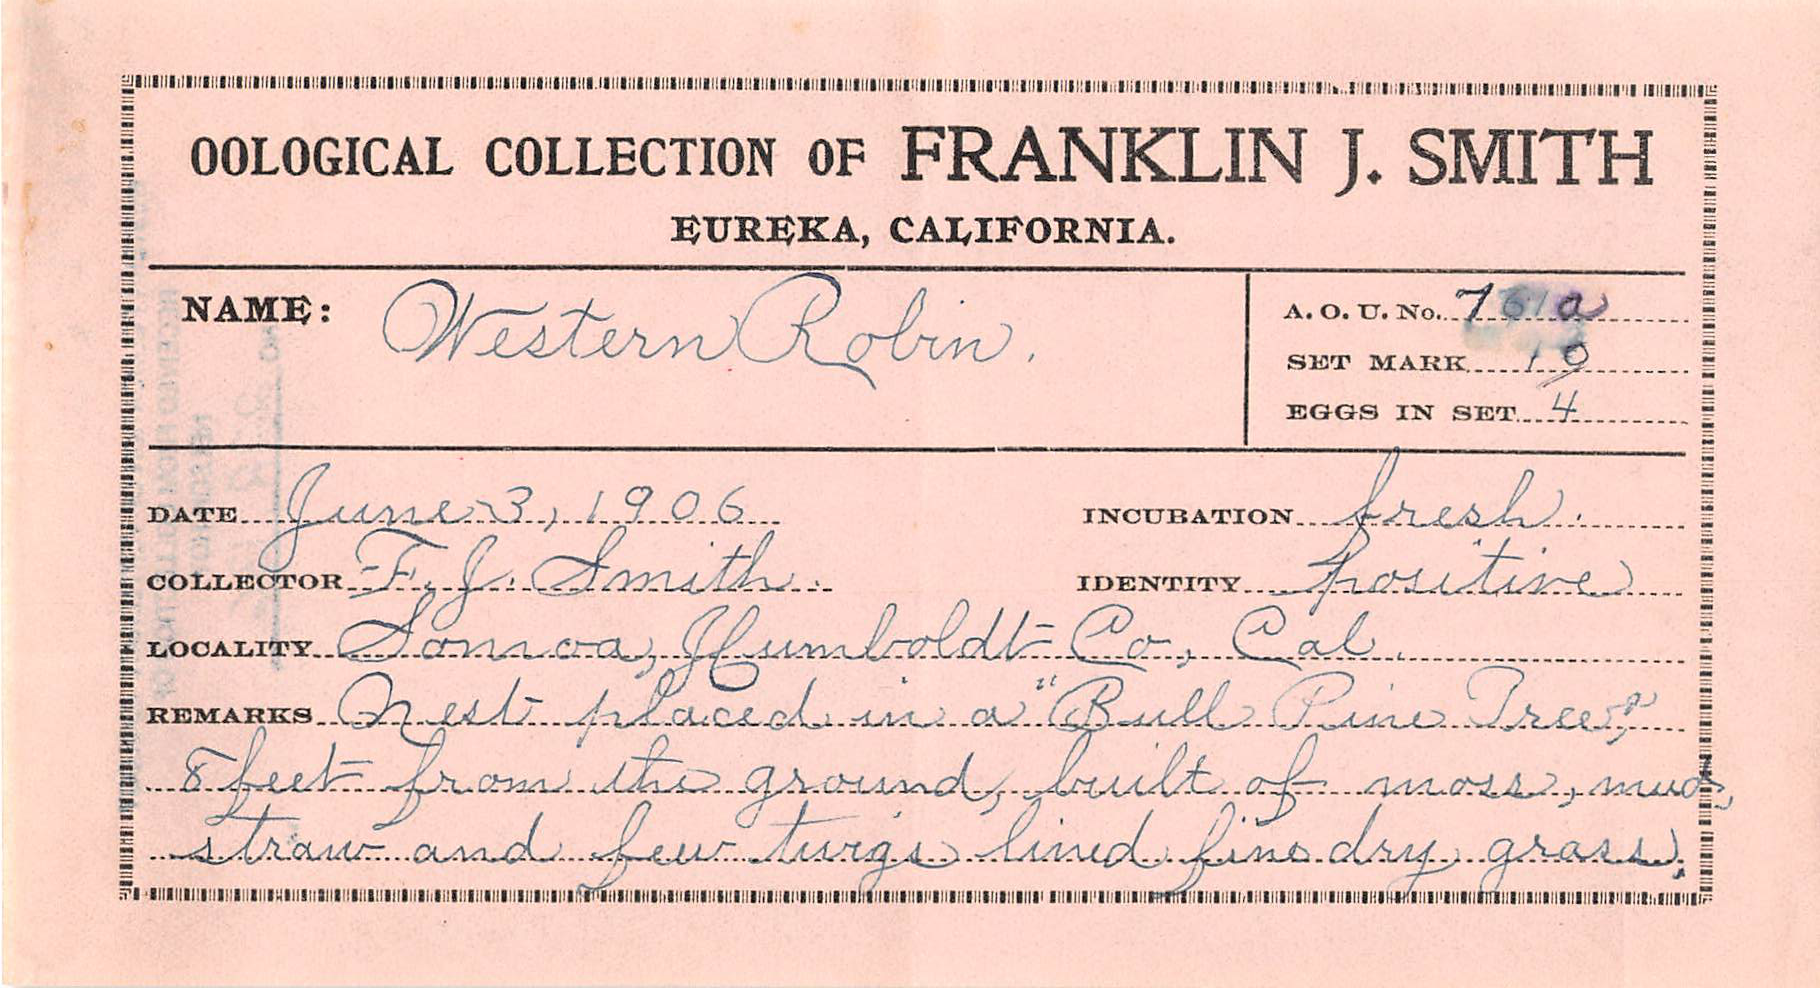 OOLOGICAL COLLECTION OF FRANKLIN J. SMITH
EUREKA, CALIFORNIA.
NAME: Western Robin.
A. O. U. No. 761a
SET MARK
EGGS IN SET 4
DATE June 3, 1906
INCUBATION fresh.
COLLECTOR F. J. Smith.
IDENTITY positive
LOCALITY Somoa, Humboldt Co, Cal.
REMARKS Nest placed in a "Bull Pine Tree,"
8 feet from the ground, built of moss, mud,
straw and few twigs lined fine dry grass.